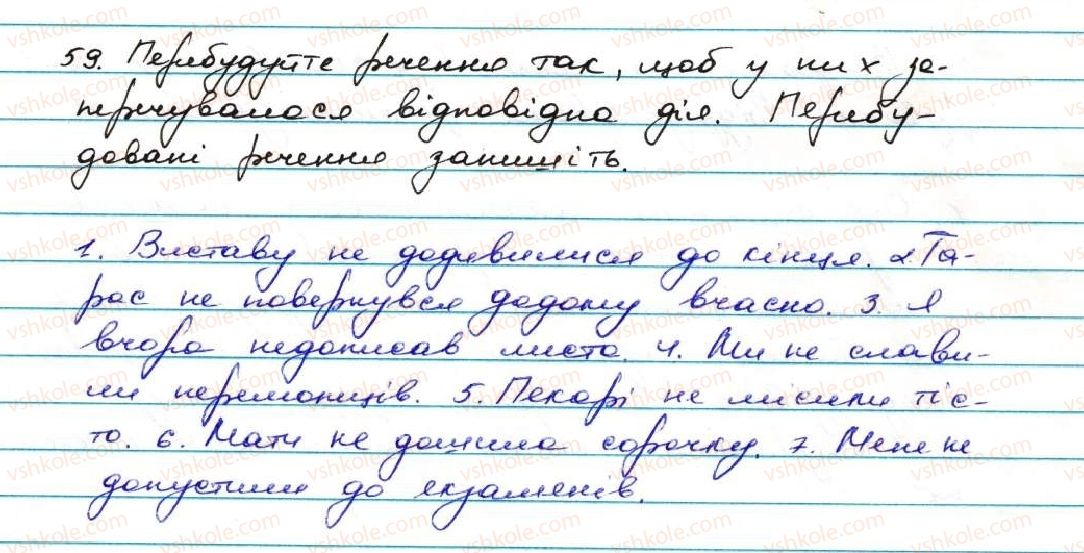 59. Перебудуйте речення так, щоб у них за-
перечувалася відповідна дія. Перебу-
довані речення запишіть.
1. Виставу не додивилися до кінця. 2. Та-
рас не повернувся додому вчасно. 3. Я
вчора недописав листа. 4. Ми не слави-
ли переможців. 5. Пекарі не місили тіс-
то. 6. Мати не дошила сорочку. 7. Мене не
допустили до екзаменів.